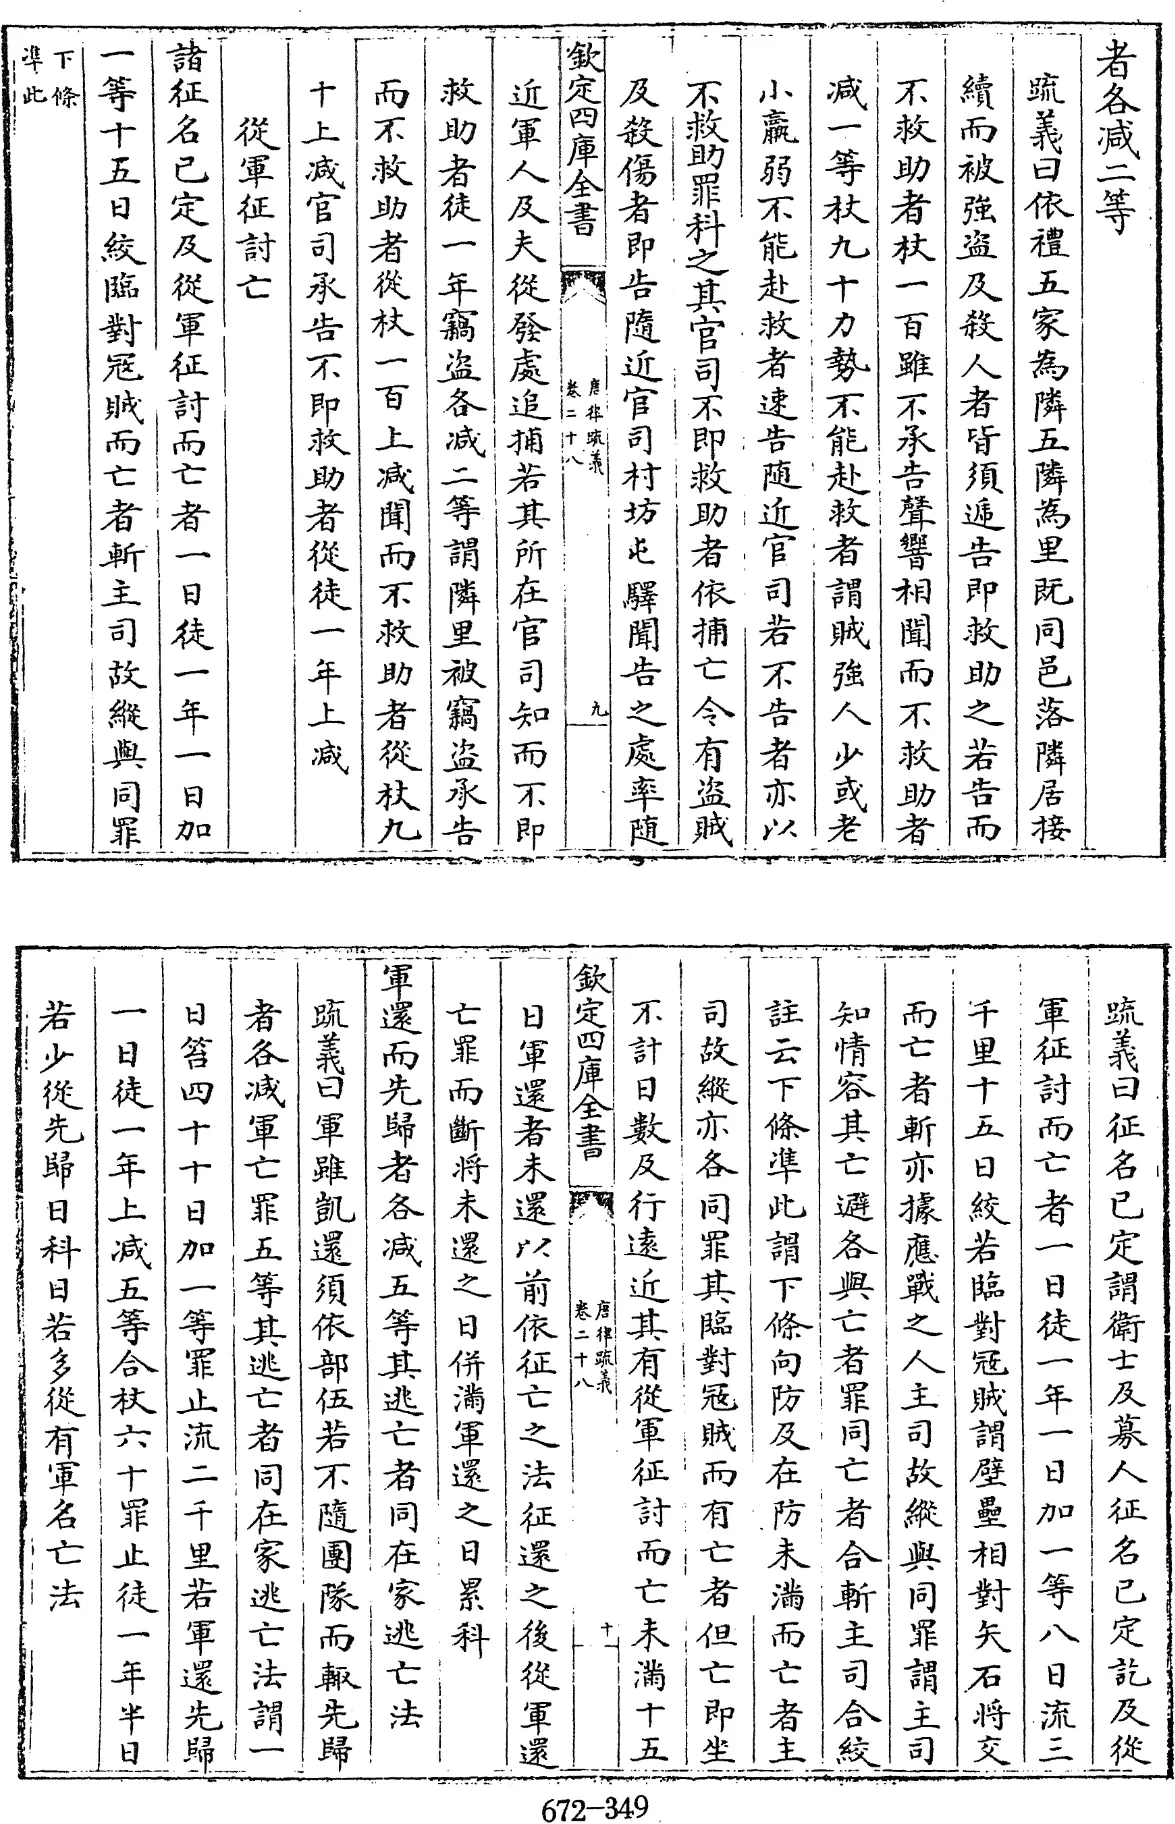 者各减二等
疏義曰依禮五家為隣五隣為里既同邑落隣居接
續而被強盗及殺人者皆須遞告即救助之若告而
不救助者杖一百雖不承告聲響相聞而不救助者
减一等杖九十力勢不能赴救者謂賊強人少或老
小羸弱不能赴救者速告随近官司若不告者亦以
不救助罪科之其官司不即救助者依捕亡令有盗賊
及殺傷者即告隨近官司村坊屯驛聞告之處率随
欽定四庫全書
唐律疏義
卷二十八
九
近軍人及夫從發處追捕若其所在官司知而不即
救助者徒一年竊盗各减二等謂隣里被竊盗承告
而不救助者從杖一百上减聞而不救助者從杖九
十上减官司承告不即救助者從徒一年上减
從軍征討亡
諸征名已定及從軍征討而亡者一日徒一年一日加
一等十五日絞臨對冦賊而亡者斬主司故縱與同罪
下條
準此
疏義曰征名已定謂衛士及募人征名已定訖及從
軍征討而亡者一日徒一年一日加一等八日流三
千里十五日絞若臨對冦賊謂壁壘相對矢石將交
而亡者斬亦據應戰之人主司故縱與同罪謂主司
知情容其亡避各與亡者罪同亡者合斬主司合絞
註云下條準此謂下條向防及在防未滿而亡者主
司故縱亦各同罪其臨對冦賊而有亡者但亡即坐
不計日數及行遠近其有從軍征討而亡未滿十五
欽定四庫全書
唐律疏義
卷二十八
十
日軍還者未還以前依征亡之法征還之後從軍還
亡罪而斷將未還之日併滿軍還之日累科
軍還而先歸者各减五等其逃亡者同在家逃亡法
疏義曰軍雖凱還須依部伍若不隨團隊而輙先歸
者各减軍亡罪五等其逃亡者同在家逃亡法謂一
日笞四十十日加一等罪止流二千里若軍還先歸
一日徒一年上减五等合杖六十罪止徒一年半日
若少從先歸日科日若多從有軍名亡法
672-349